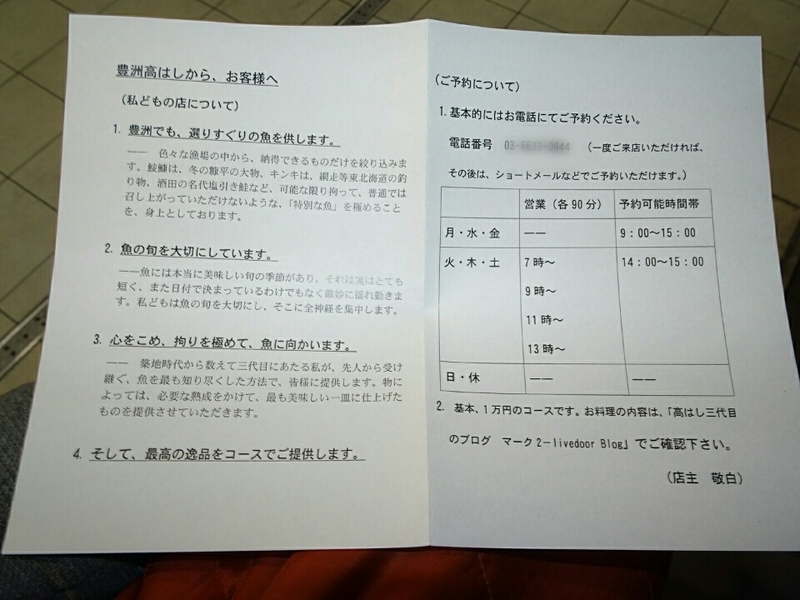 豊洲高はしから、お客様へ
（私どもの店について）
1. 豊洲でも、選りすぐりの魚を供します。
―― 色々な漁場の中から、納得できるものだけを絞り込みます。鮟鱇は、冬の
余市の大物、キンキは、網走等東北海道の釣
り物、酒田の名代塩引き鮭など、可能な限り拘って、普通では
召し上がっていただけないような、「特別な魚」を極めること
を、身上としております。
2. 魚の旬を大切にしています。
――魚には本当に美味しい旬の季節があり、それは実はとても
短く、また日付で決まっているわけでもなく微妙に揺れ動きま
す。私どもは魚の旬を大切にし、そこに全神経を集中します。
3. 心をこめ、拘りを極めて、魚に向かいます。
―― 築地時代から数えて三代目にあたる私が、先人から受け
継ぐ、魚を最も知り尽くした方法で、皆様に提供します。物に
よっては、必要な熟成をかけて、最も美味しい一皿に仕上げた
ものを提供させていただきます。
4. そして、最高の逸品をコースでご提供します。
（ご予約について）
1. 基本的にはお電話にてご予約ください。
電話番号 （一度ご来店いただければ、
その後は、ショートメールなどでご予約いただけます。）
営業（各90分） 予約可能時間帯
月・水・金 ―― 9：00～15：00
火・木・土 7時～ 14：00～15：00
9時～
11時～
13時～
日・休 ―― ――
2. 基本、1万円のコースです。お料理の内容は、「高はし三代目
のブログ マーク2－livedoor Blog」でご確認下さい。
（店主 敬白）